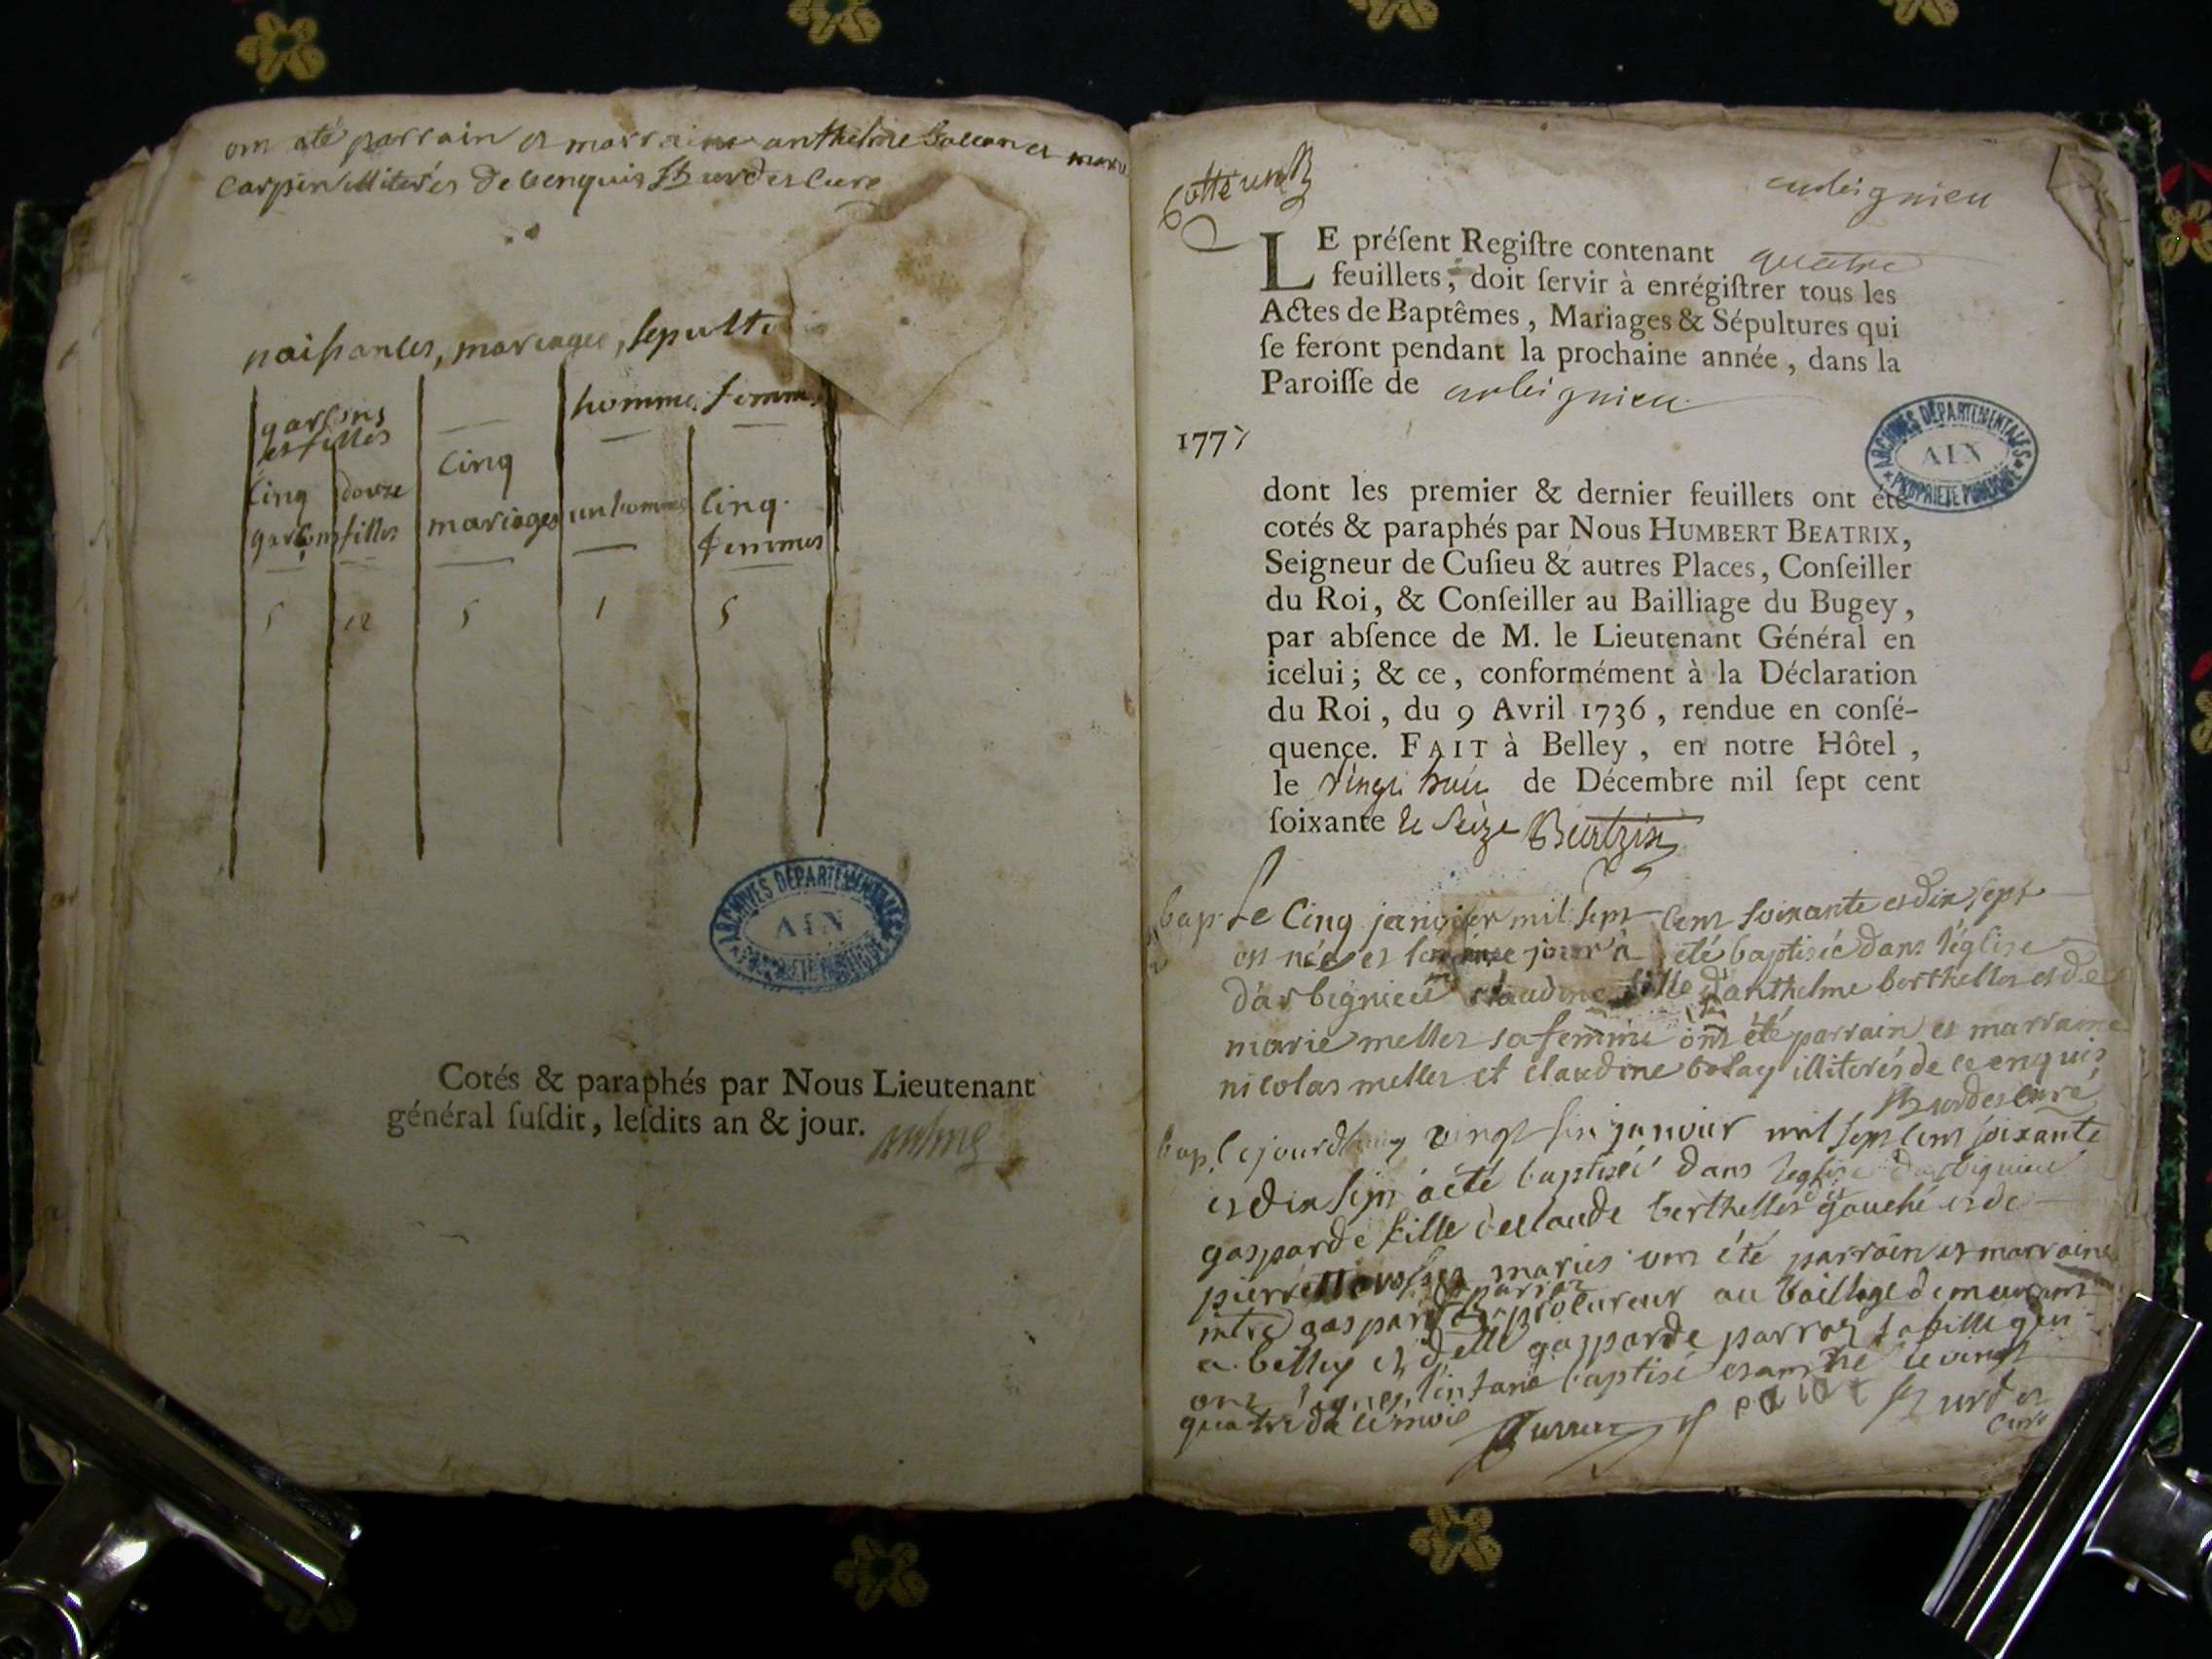 ont été parrain et marraine anthelme et marie
Carpin illiterés de ce enquis Burdet curé
naissances, mariages, sepult
garsons et filles
homme femm
Cinq garsons
douze filles
Cinq mariages
un homme
Cinq femmes
5 12 5 1 5
ARCHIVES DÉPARTEMENTALES
AIN
PROPRIÉTÉ PUBLIQUE
Cotés & paraphés par Nous Lieutenant
général ſuſdit, leſdits an & jour.
Cotte un
arbignieu
LE préſent Regiſtre contenant quatre
feuillets, doit ſervir à enrégiſtrer tous les
Actes de Baptêmes, Mariages & Sépultures qui
ſe feront pendant la prochaine année, dans la
Paroiſſe de arbignieu
1777
ARCHIVES DÉPARTEMENTALES
AIN
PROPRIÉTÉ PUBLIQUE
dont les premier & dernier feuillets ont été
cotés & paraphés par Nous HUMBERT BEATRIX,
Seigneur de Cuſieu & autres Places, Conſeiller
du Roi, & Conſeiller au Bailliage du Bugey,
par abſence de M. le Lieutenant Général en
icelui; & ce, conformément à la Déclaration
du Roi, du 9 Avril 1736, rendue en conſé-
quence. FAIT à Belley, en notre Hôtel,
le vingt huit de Décembre mil ſept cent
ſoixante et seize Beatrix
bap. Le Cinq janvier mil sept cent soixante et dix sept
est née et le même jour a été baptisée dans l'église
d'arbignieu claudine fille d'anthelme berthellet et de
marie mellet sa femme ont été parrain et marraine
nicolas mellet et claudine bolay illiterés de ce enquis
Burdet curé
bap. Cejourdhuy vingt six janvier mil sept cent soixante
et dix sept a été baptisée dans l'eglise d'arbignieu
gasparde fille de claude berthellet dit gauché et de
pierrette mariés ont été parrain et marraine
mtre gaspard parroz procureur au bailliage demeurant
a belley et delle gasparde parroz sa fille qui
ont signé, l'enfant baptisé etant né le vingt
quatre du ce mois Parroz Burdet
curé